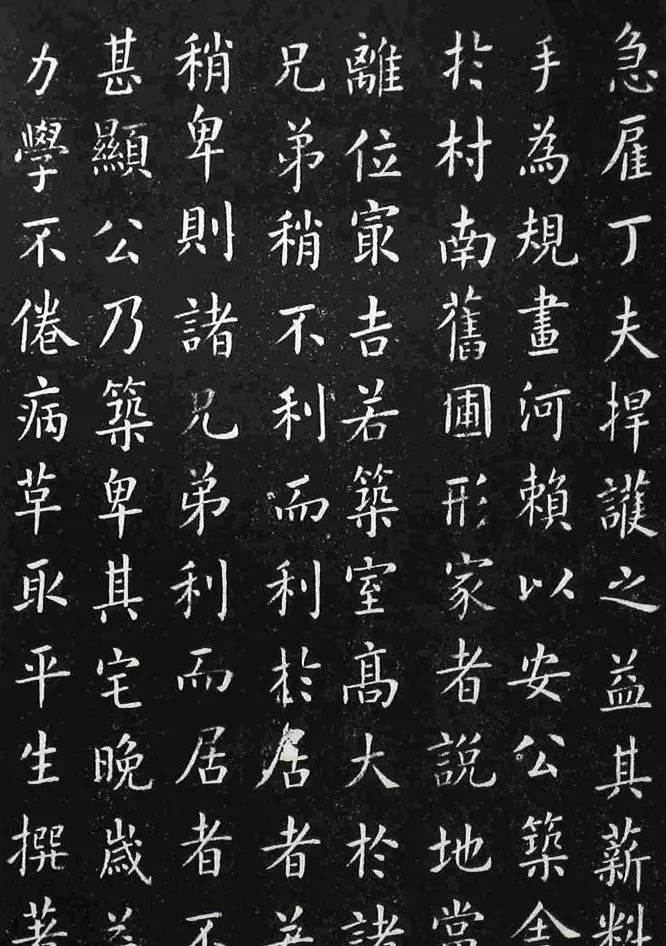 急雇丁夫捍護之益其薪料
手為規畫河賴以安公築舍
於村南舊圃形家者說地當
離位冣吉若築室高大於諸
兄弟稍不利而利於居者若
稍卑則諸兄弟利而居者不
甚顯公乃築卑其宅晚歲益
力學不倦病草取平生撰著